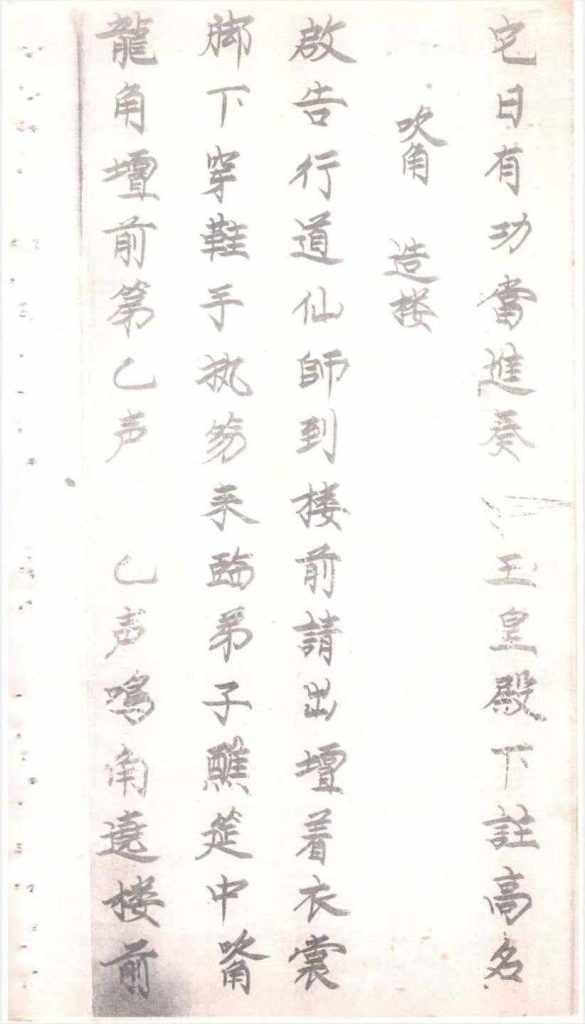 它日有功當進奏 玉皇殿下註高名
吹角 造楼
啟告行道仙師到楼前請出壇着衣裳
脚下穿鞋手执笏来臨弟子醮筵中 吹角
龍角壇前第乙声 乙声鳴角遶楼前